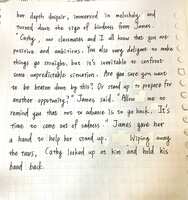 her depth despair, immersed in melancholy and
turned down the sign of kindness from James.
"Cathy, our classmates and I all know that you are
passive and ambitious. I'm also very delighted to make
things go straight, but it's inevitable to confront
some unpredictable situation. Are you sure you want
to be beaten down by this? Or stand up to prepare for
another opportunity?" James said. "Allow me to
remind you that not to advance is to go back. It's
time to come out of sadness." James gave her
a hand to help her stand up. Wiping away
the tears, Cathy looked up at him and held his
hand back.